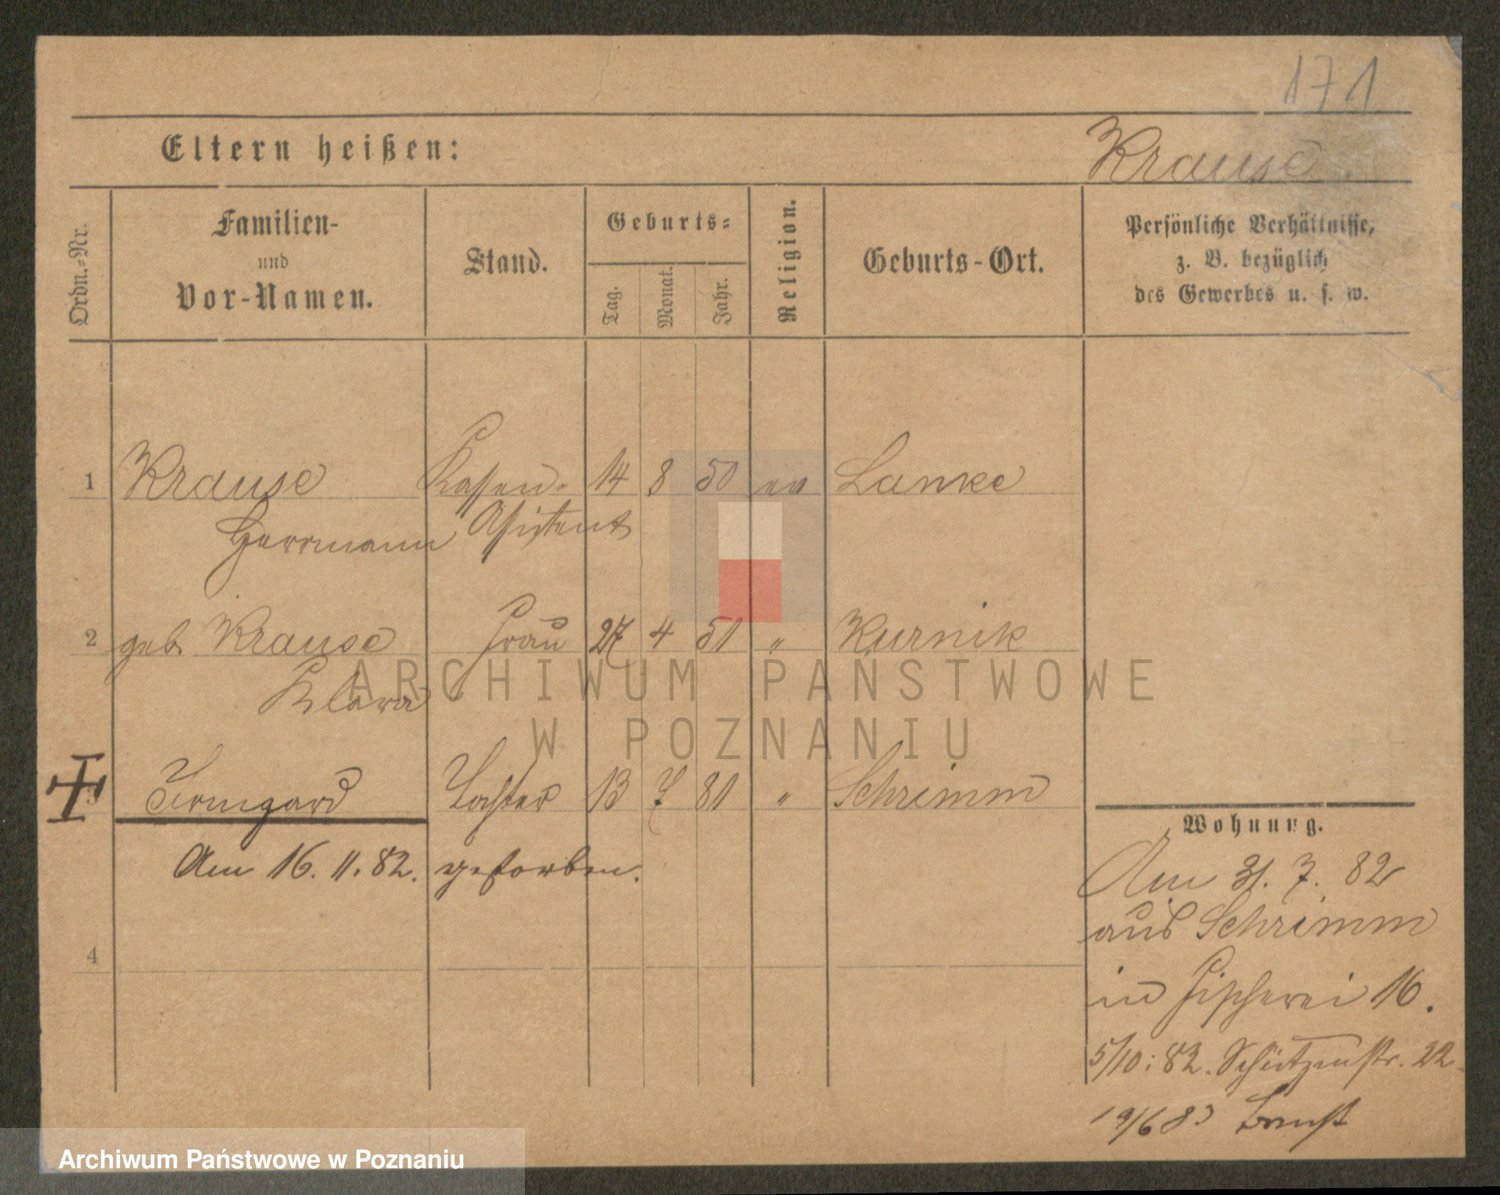 171
Eltern heißen:
Krause
Ordn.-Nr.
Familien-
und
Vor-Namen.
Stand.
Geburts-
Tag.
Monat.
Jahr.
Religion.
Geburts-Ort.
Persönliche Verhältnisse,
z. B. bezüglich
des Gewerbes u. s. w.
1 Krause Kassen- 14 8 50 ev Lanke
Herrmann Assistent
2 geb. Krause Frau 27 4 51 " Kurnik
Klara
ARCHIWUM PAŃSTWOWE
W POZNANIU
3 Irmgard Tochter 13 7 81 " Schrimm
Am 16. 11. 82. gestorben.
4
Wohnung.
Am 31. 7. 82
aus Schrimm
in Fischerei 16.
5/10. 82. Schützenstr. 22.
19/6 83
Archiwum Państwowe w Poznaniu